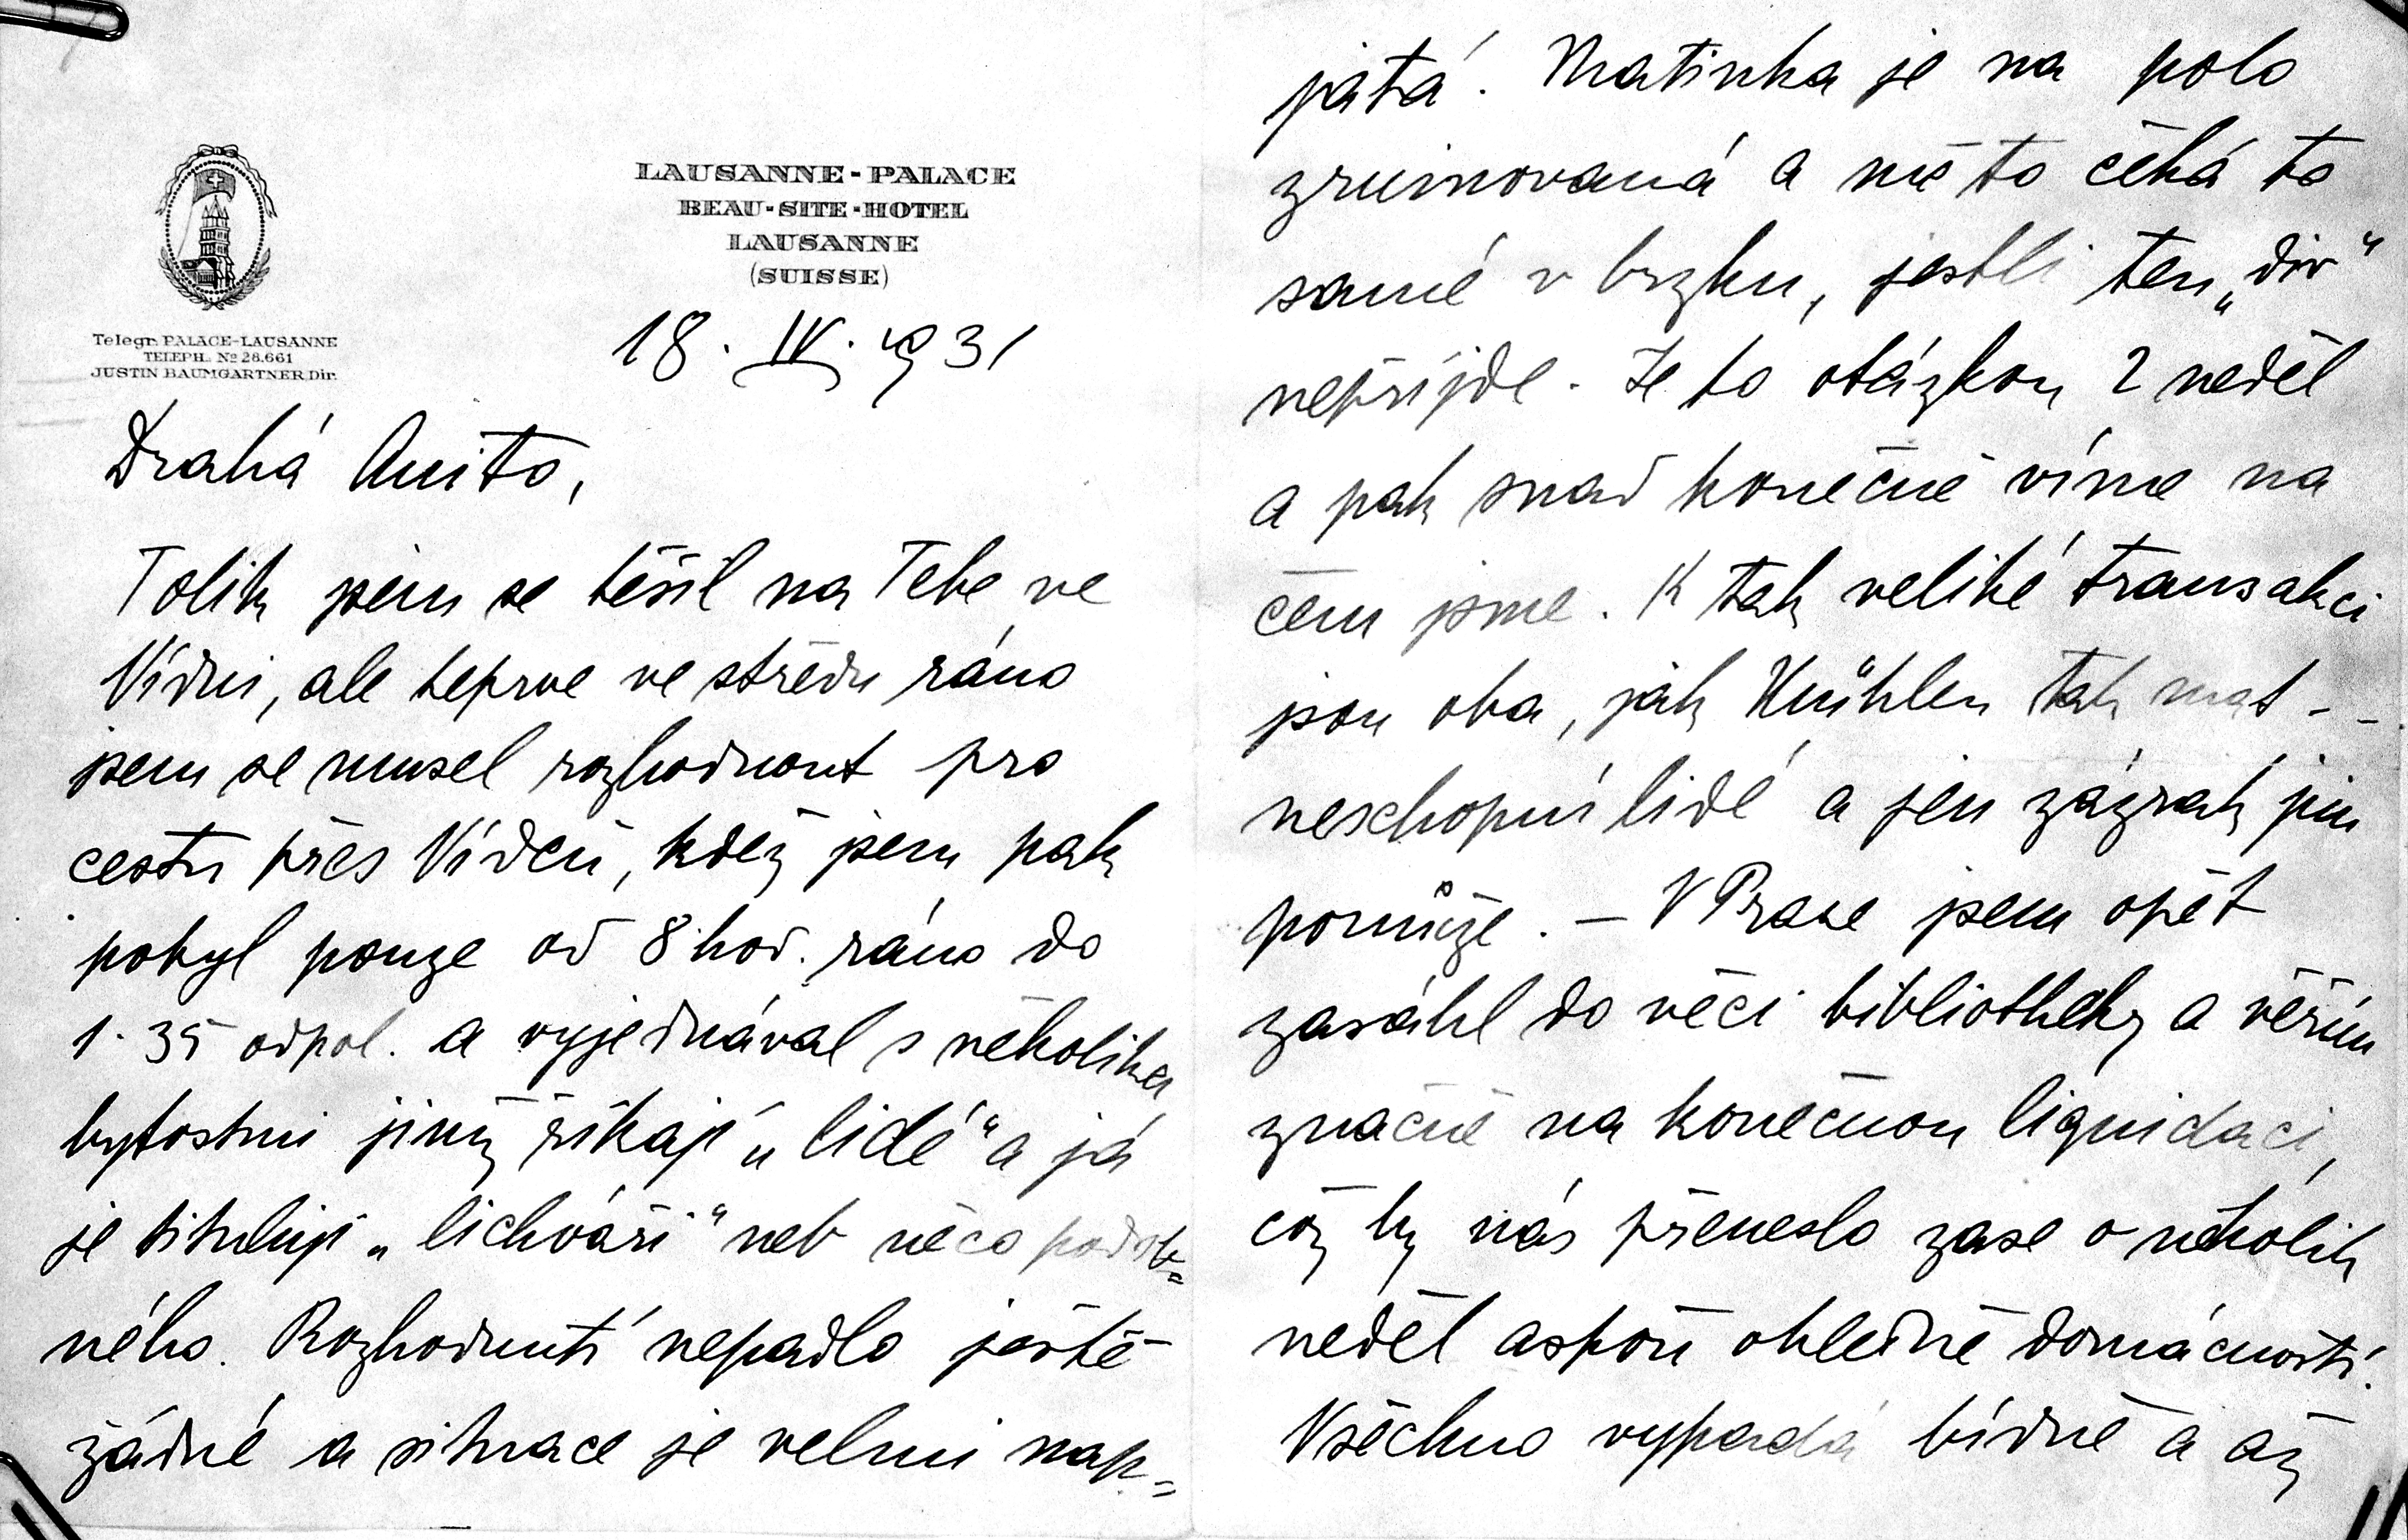 LAUSANNE-PALACE
BEAU-SITE-HOTEL
LAUSANNE
(SUISSE)
Telegr. PALACE-LAUSANNE
TELEPH. Nº 28.661
JUSTIN BAUMGARTNER, Dir.
18. IV. 1931
Drahá Anito,
Tolik jsem se těšil na Tebe ve
Vídni, ale teprve ve středu ráno
jsem se musel rozhodnout pro
cestu přes Vídeň, kdež jsem pak
pobyl pouze od 8 hod. ráno do
1.35 odpol. a vyjednával s několika
bytostmi jimž říkají „lidé“ a já
je tituluji „lichváři“ neb něco podob=
ného. Rozhodnutí nepadlo ještě
žádné a situace je velmi nap=
jatá. Matinka je na polo
zruinovaná a mě to čeká to
samé v brzku, jestli ten „div“
nepříjde. Je to otázkou 2 neděl
a pak snad konečně víme na
čem jsme. K tak veliké transakci
jsou oba, jak Kuühlen tak mat - -
neschopní lidé a jen zázrak jim
pomůže. — V Praze jsem opět
zasáhl do věci bibliotheky a věřím
značně na konečnou liquidaci,
což by nás přeneslo zase o několik
neděl aspoň ohledně domácnosti.
Všechno vypadá bídně a až